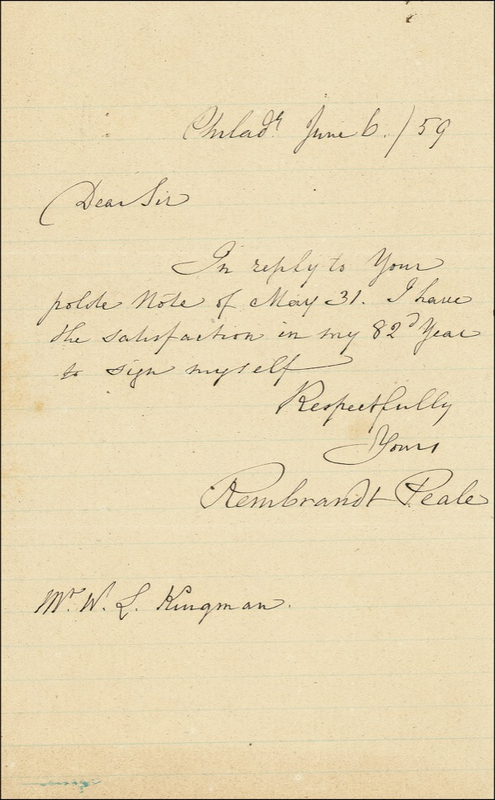 Philada. June 6. /59
Dear Sir
In reply to Your
polite Note of May 31. I have
the satisfaction in my 82d Year
to sign myself
Respectfully
Yours
Rembrandt Peale
Mr. W. L. Kingman.